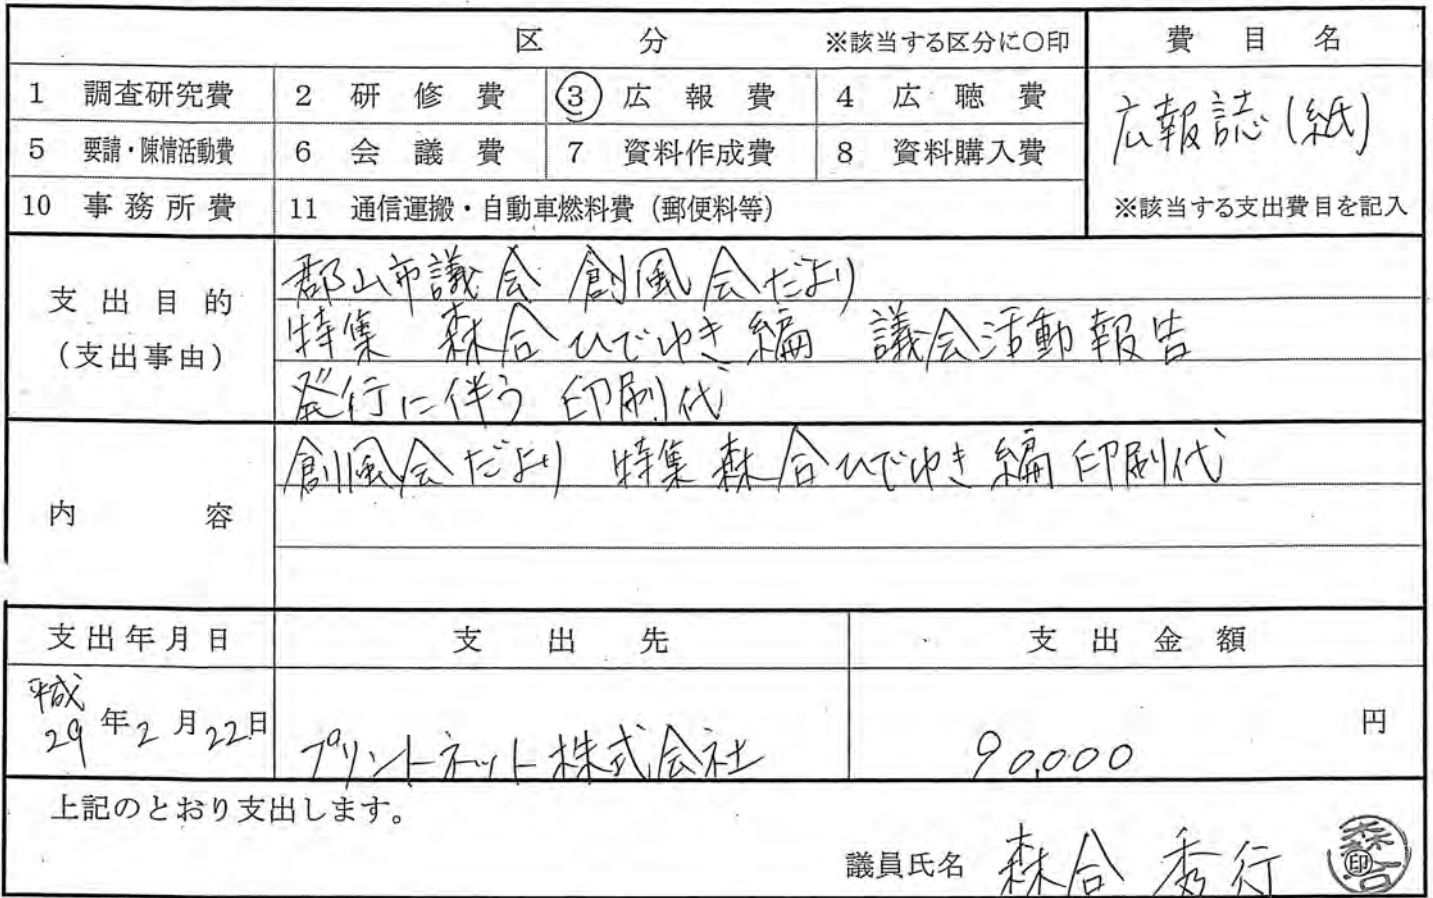 区 分 ※該当する区分に○印 費目名
1 調査研究費 2 研修費 3 広報費 4 広聴費
広報誌(紙)
5 要請・陳情活動費 6 会議費 7 資料作成費 8 資料購入費
10 事務所費 11 通信運搬・自動車燃料費(郵便料等) ※該当する支出費目を記入
支出目的
(支出事由)
郡山市議会 創風会だより
特集 森合ひでゆき編 議会活動報告
発行に伴う 印刷代
内容
創風会だより 特集 森合ひでゆき編 印刷代
支出年月日 支出先 支出金額
平成29年2月22日 プリントネット株式会社 90,000円
上記のとおり支出します。
議員氏名 森合 秀行 印
森合